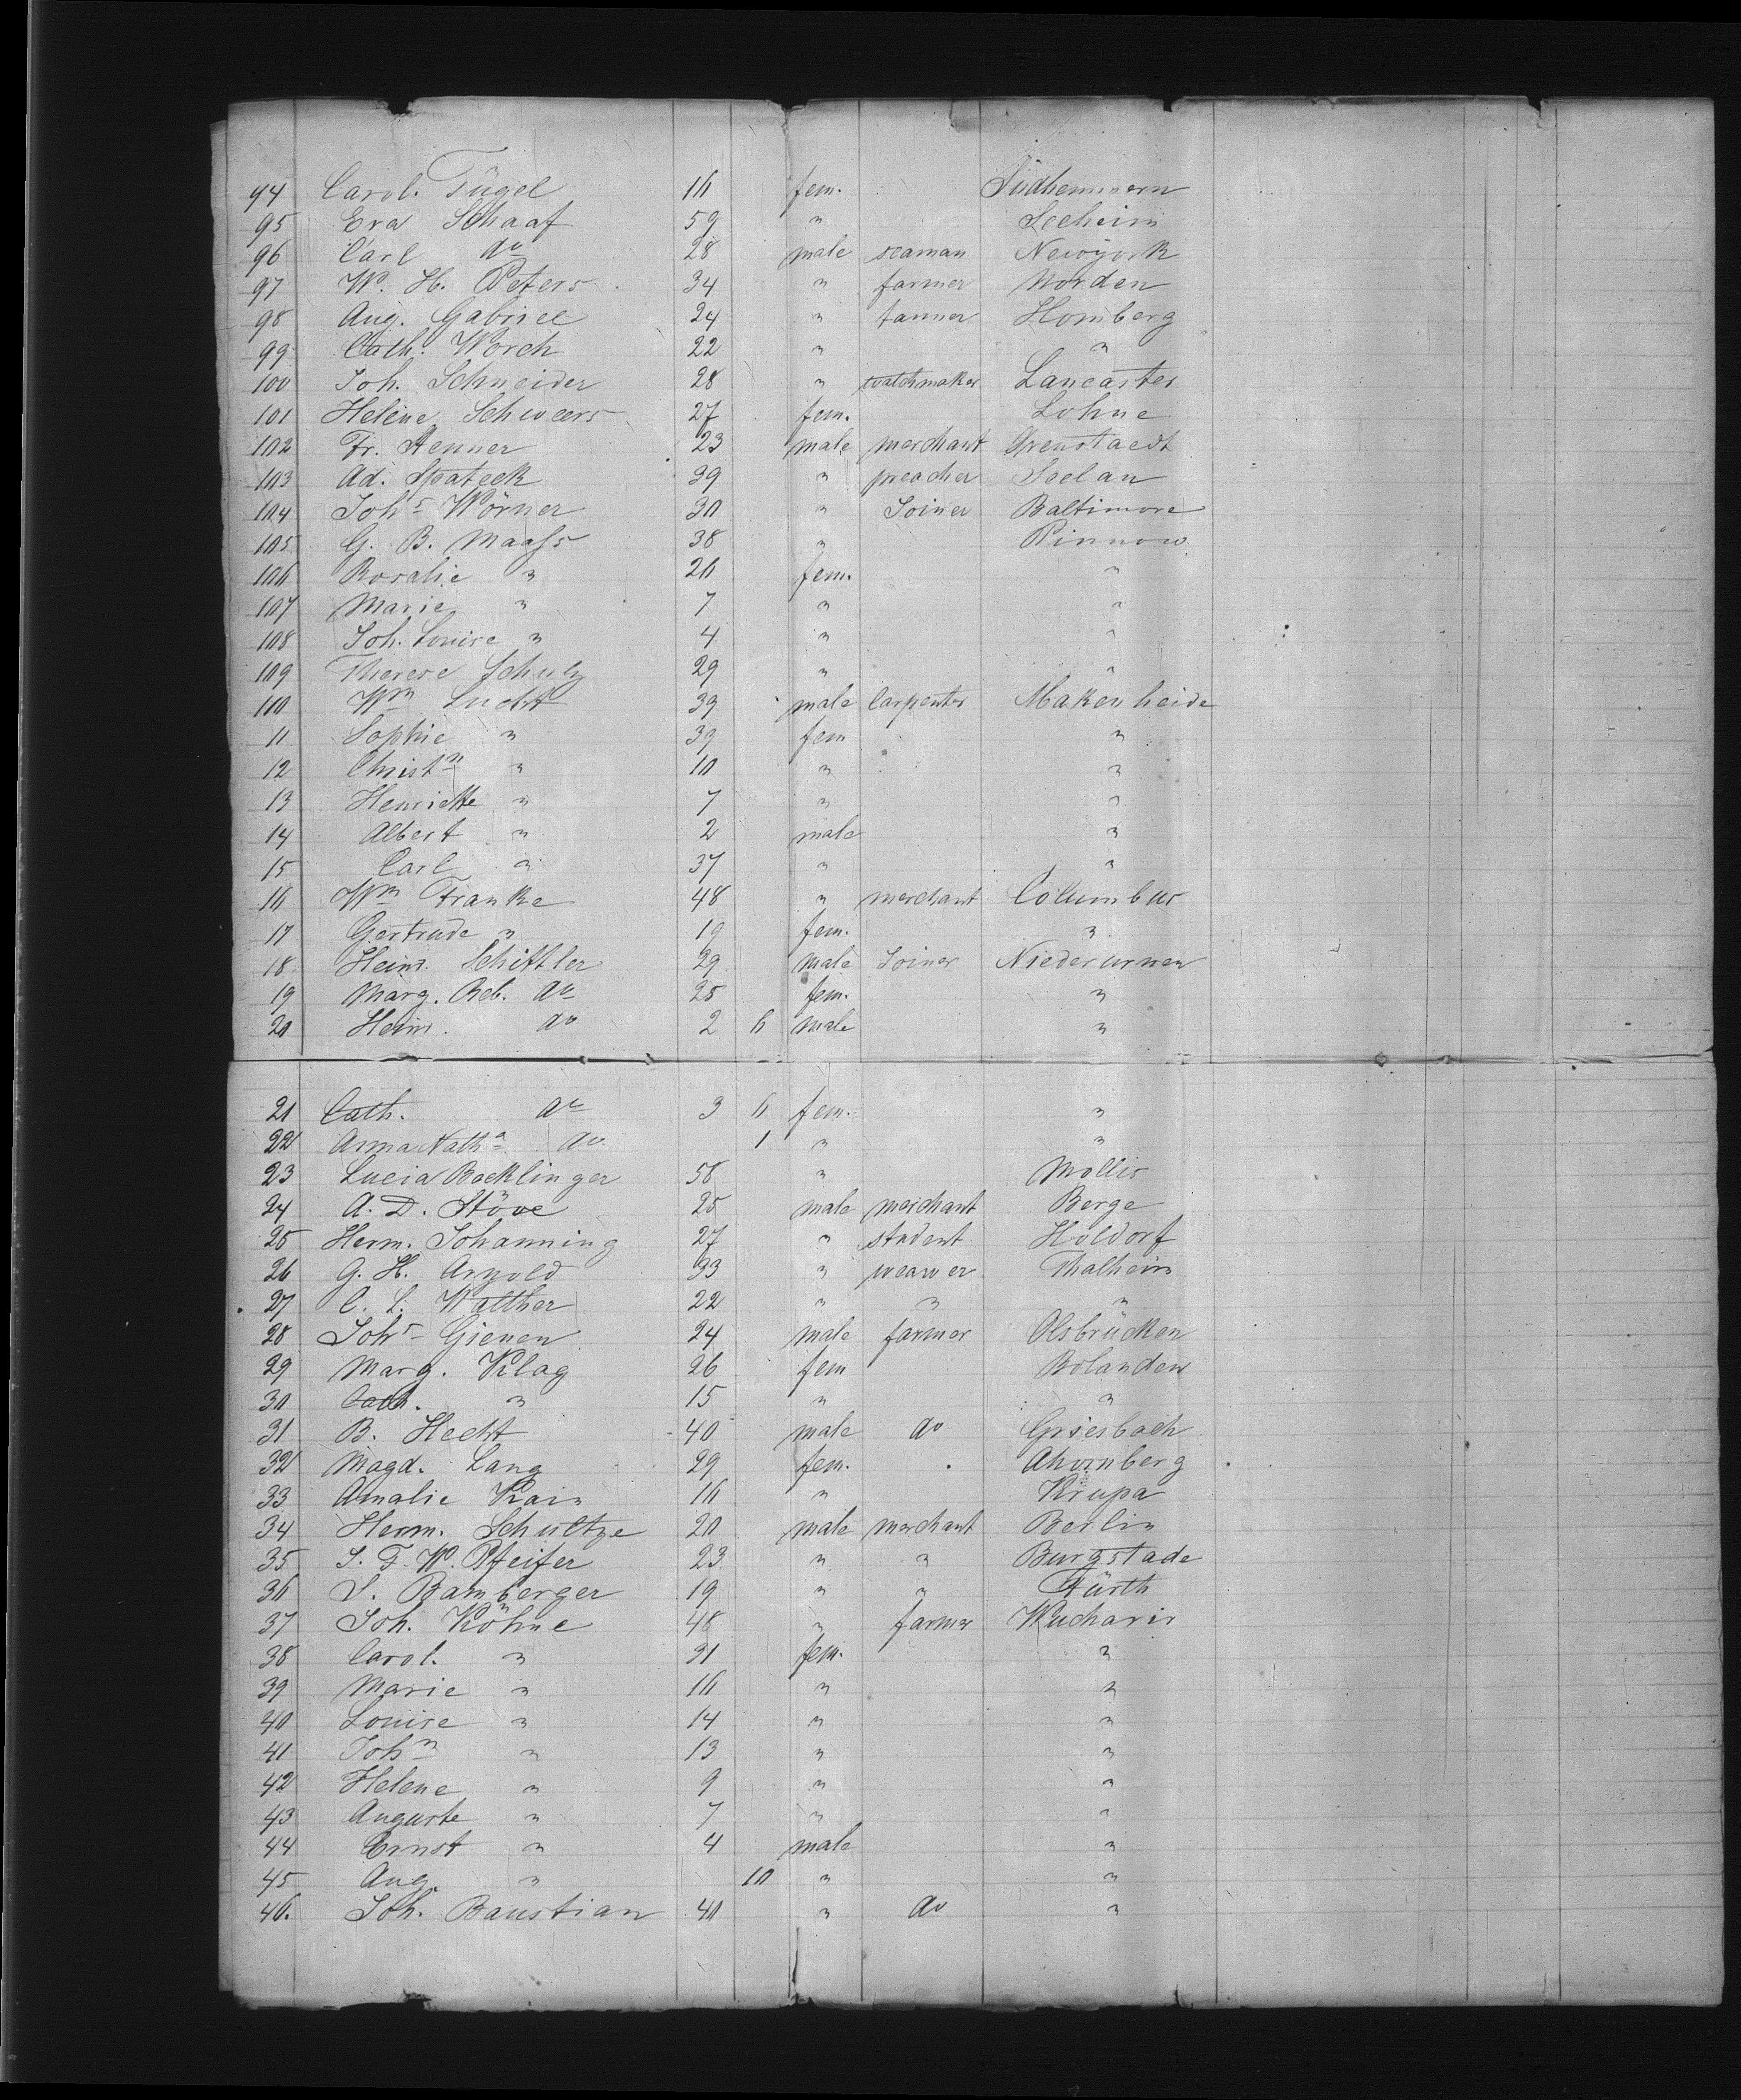 94 Carol. Tügel 16 fem. Südhemmern
95 Eva Schaaf 59 " Seeheim
96 Carl do 28 male seaman Newyork
97 W. H. Peters 34 " farmer Norden
98 Aug. Gabriel 24 " tanner Homberg
99 Cath. Worch 22 " "
100 Joh. Schneider 28 " watchmaker Lancaster
101 Helene Schweers 27 fem. Lohne
102 Fr. Renner 23 male merchant
103 Ad. Spateck 39 " preacher Seelau
104 Johs Wörner 30 " Joiner Baltimore
105 G. B. Maass 38 " Pinnow
106 Rosalie " 26 fem. "
107 Marie " 7 " "
108 Joh. Louise " 4 " "
109 Therese Schulz 29 " "
110 Wm Lucht 39 male Carpenter Makenheide
11 Sophie " 39 fem "
12 Christn " 10 " "
13 Henriette " 7 " "
14 Albert " 2 male "
15 Carl " 37 " "
16 Wm Franke 48 " merchant Columbus
17 Gertrude " 19 fem. "
18 Heinr. Schittler 29 male Joiner Niederurnen
19 Marg. Reb. do 25 fem. "
20 Heinr. do 2 6 male "
21 Cath. do 3 6 fem. "
22 Anna Natha do 1 " "
23 Lucia Backlinger 58 " Mollis
24 A. D. Stöve 25 male merchant Berge
25 Herm. Johanning 27 " student Holdorf
26 G. H. Arnold 33 " weawer Thalheim
27 C. L. Walther 22 " " "
28 Johs Gienen 24 male farmer Olsbrücken
29 Marg. Klag 26 fem Bolanden
30 Cath. " 15 " "
31 B. Hecht 40 male do Griesbach
32 Magd. Lang 29 fem. Ahornberg
33 Amalie Kain 16 " Krupa
34 Herm. Schultze 20 male merchant Berlin
35 J. F. W. Pfeifer 23 " " Burgstade
36 S. Bamberger 19 " " Fürth
37 Joh. Köhne 48 " farmer Wucharis
38 Carol. " 31 fem. "
39 Marie " 16 " "
40 Louise " 14 " "
41 John " 13 " "
42 Helene " 9 " "
43 Auguste " 7 " "
44 Ernst " 4 male "
45 Aug. " 10 " "
46. Joh. Baustian 40 " do "